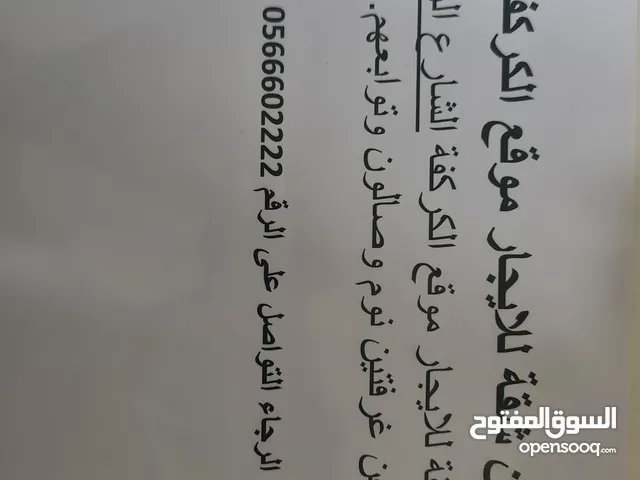 شقة للايجار موقع الكركفة
للايجار موقع الكركفة الشارع
غرفتين نوم وصالون وتوابعهم.
الرجاء التواصل على الرقم 0566602222
السوق المفتوح
opensooq.com